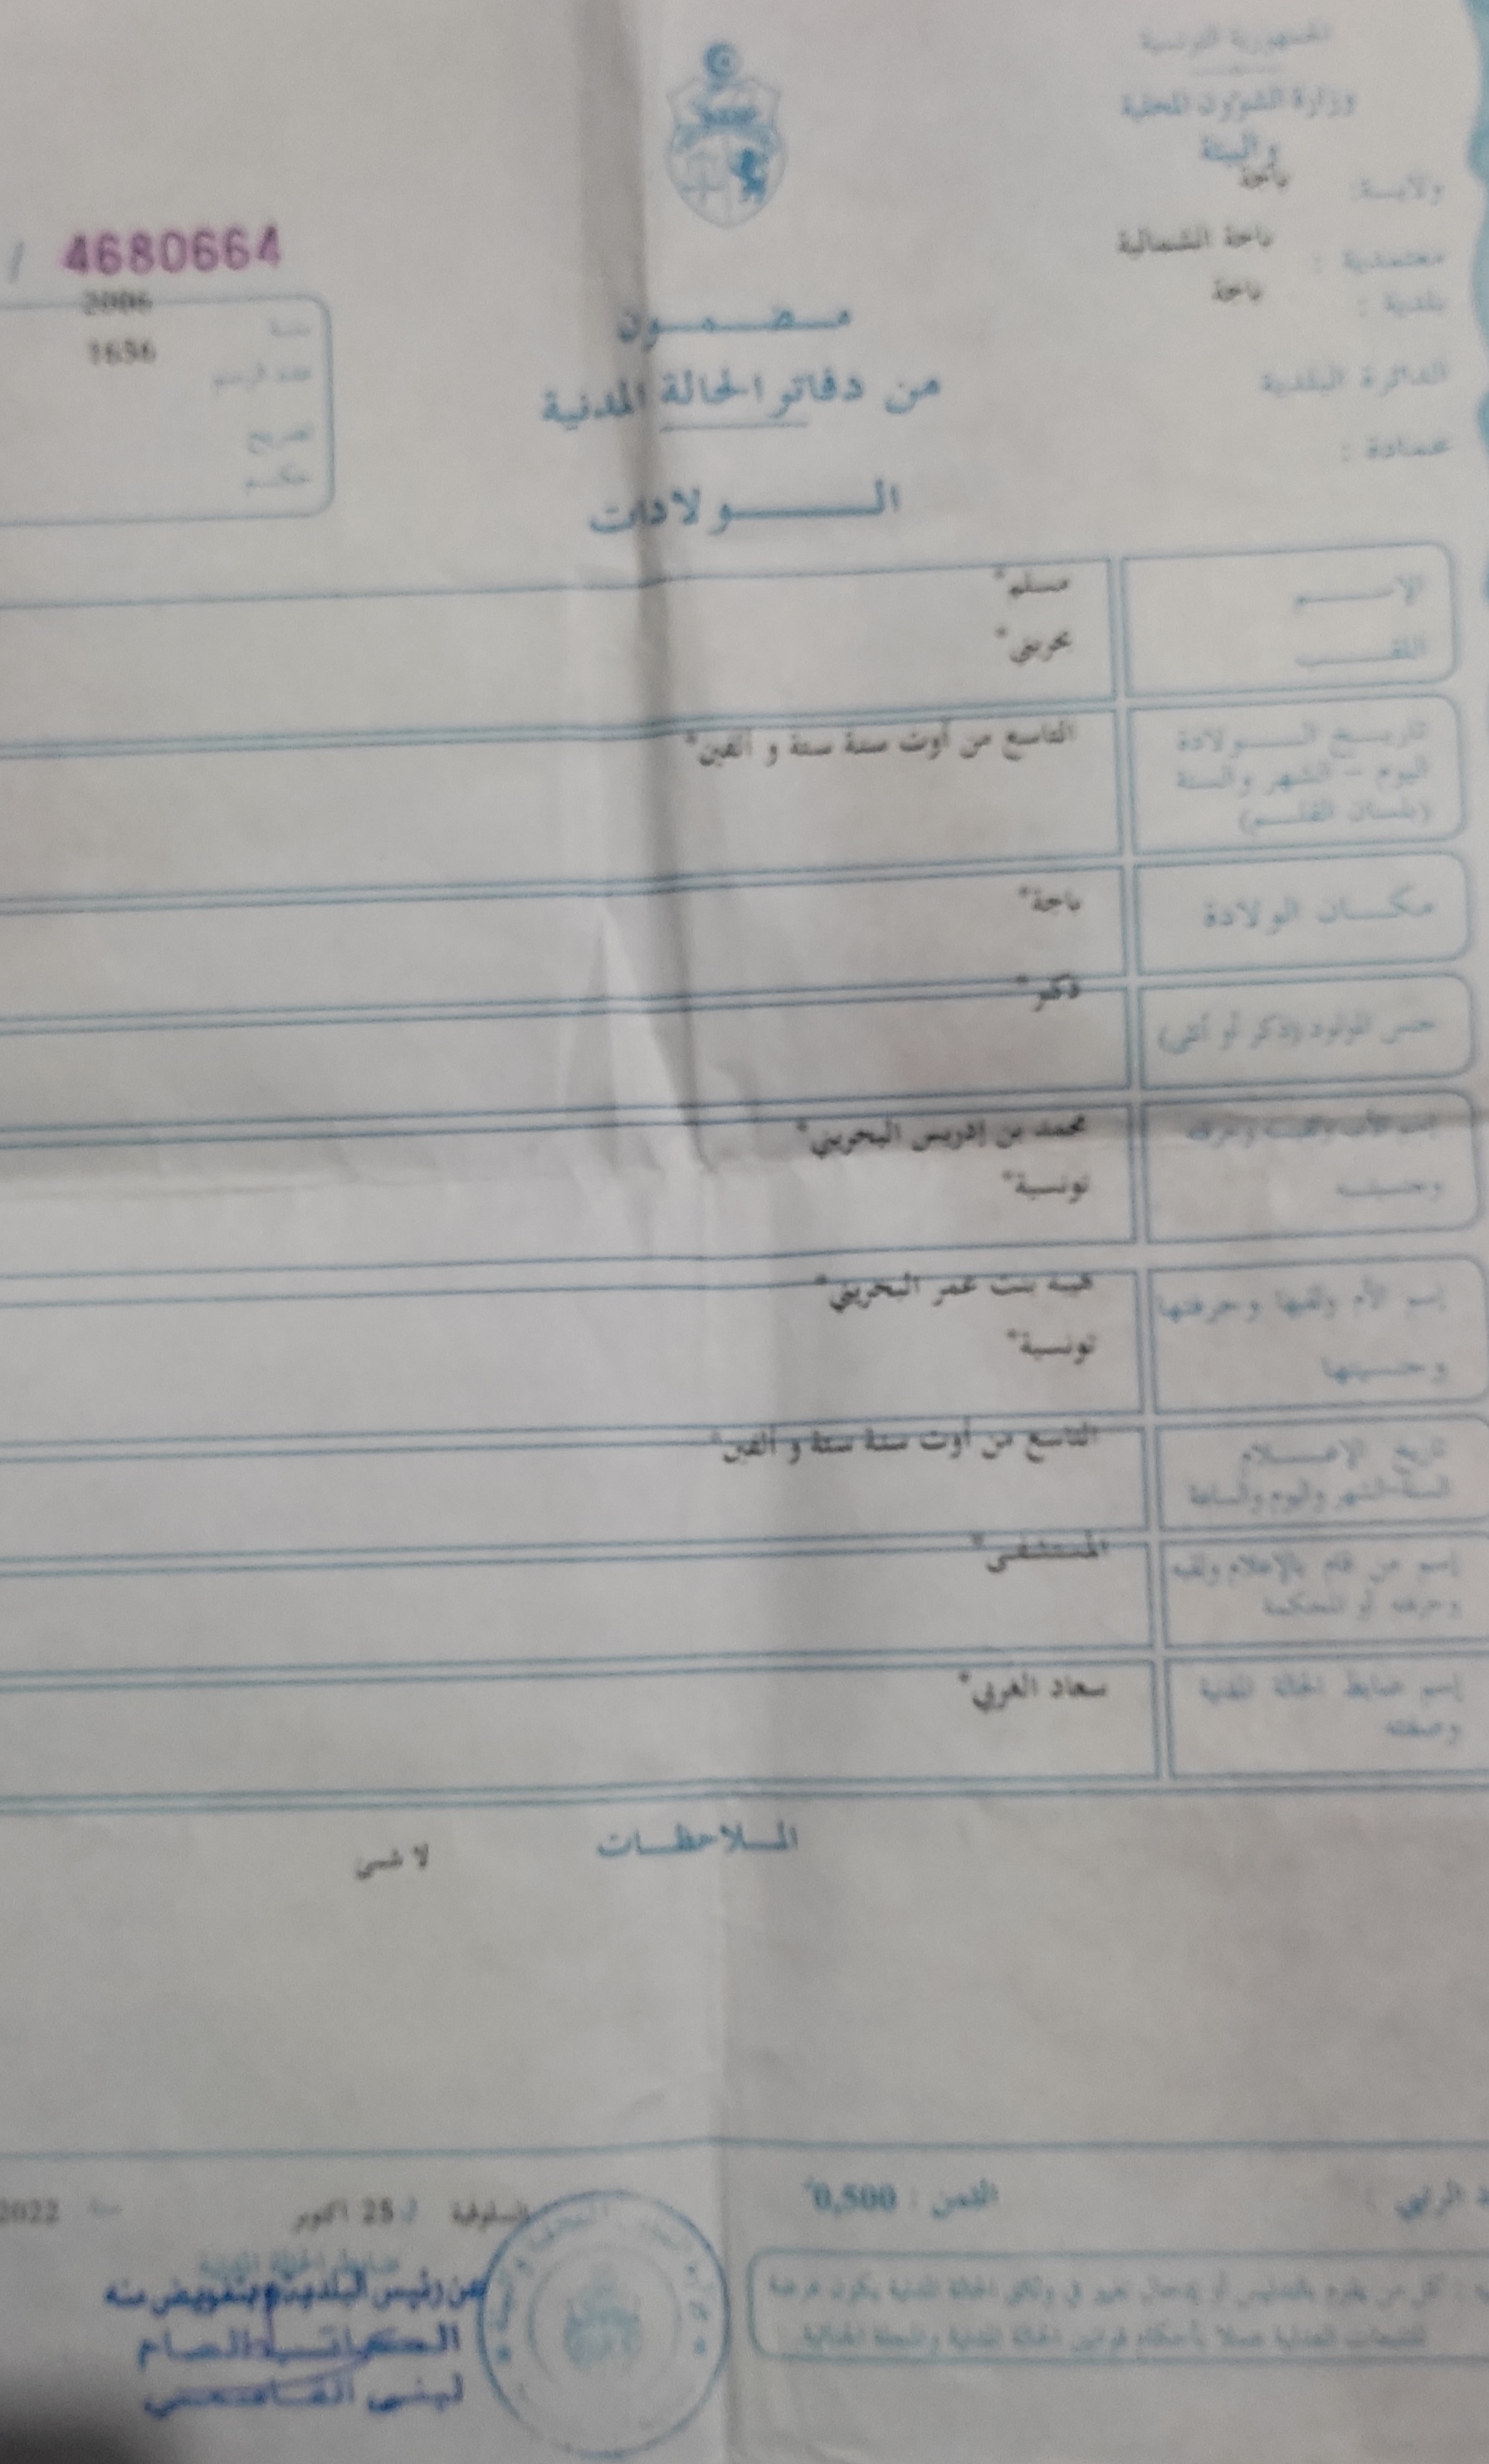 الجمهورية التونسية
وزارة الشؤون المحلية
والبيئة
ولايــة: باجة
معتمدية : باجة الشمالية
بلدية : باجة
الدائرة البلدية
عمادة :
4680664
سنة 2006
عدد الرسم 1656
تصريح
حكم
مـضـمـون
من دفاتر الحالة المدنية
الــولادات
الإســـم مسلم*
اللقـــب بحريني*
تاريــخ الــولادة التاسع من أوت سنة ستة و ألفين*
اليوم – الشهر والسنة
(بلسان القلم)
مكــان الولادة باجة*
جنس المولود (ذكر أو أنثى) ذكر*
محمد بن إدريس البحريني*
وجنسيته تونسية*
إسم الأم ولقبها وحرفتها بنت عمر البحريني*
وجنسيتها تونسية*
تاريخ الإعــلام التاسع من أوت سنة ستة و ألفين*
السنة الشهر واليوم والساعة
إسم من قام بالإعلام ولقبه المستشفى*
وحرفته أو المحكمة
إسم ضابط الحالة المدنية سعاد الغربي*
وصفته
المـلاحظـات
لا شىء
الثمن : 0,500
السلوقية في 25 أكتوبر سنة 2022
ضابط الحالة المدنية
عن رئيس البلدية وبتفويض منه
الكاتب العام
لبنى القاسمي
كل من يقوم بالتدليس أو إدخال تغيير في وثائق الحالة المدنية يكون عرضة
للتتبعات العدلية عملا بأحكام قوانين الحالة المدنية والمجلة الجنائية.